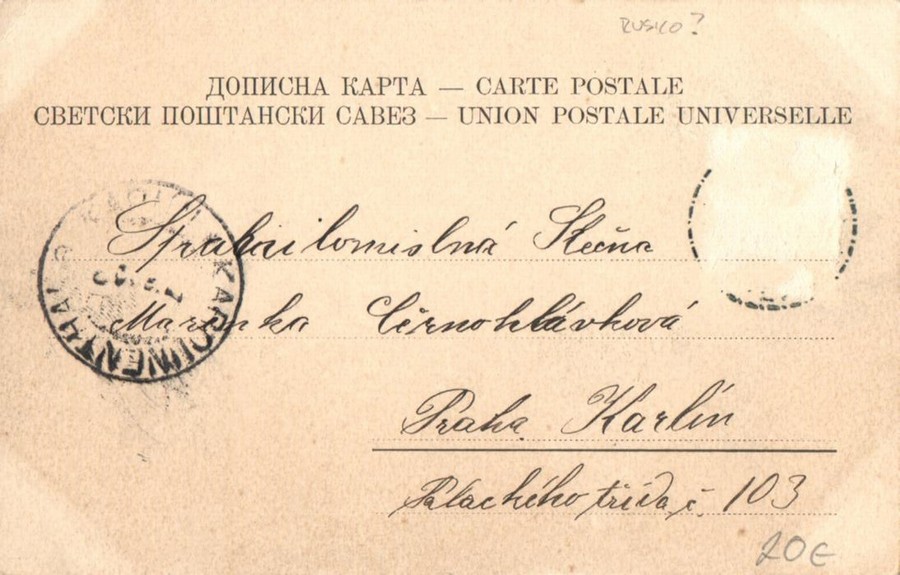 RUSKO?
ДОПИСНА КАРТА — CARTE POSTALE
СВЕТСКИ ПОШТАНСКИ САВЕЗ — UNION POSTALE UNIVERSELLE
Slečna
Marenka Černohlávková
Praha Karlín
Palackého třída č. 103
20€